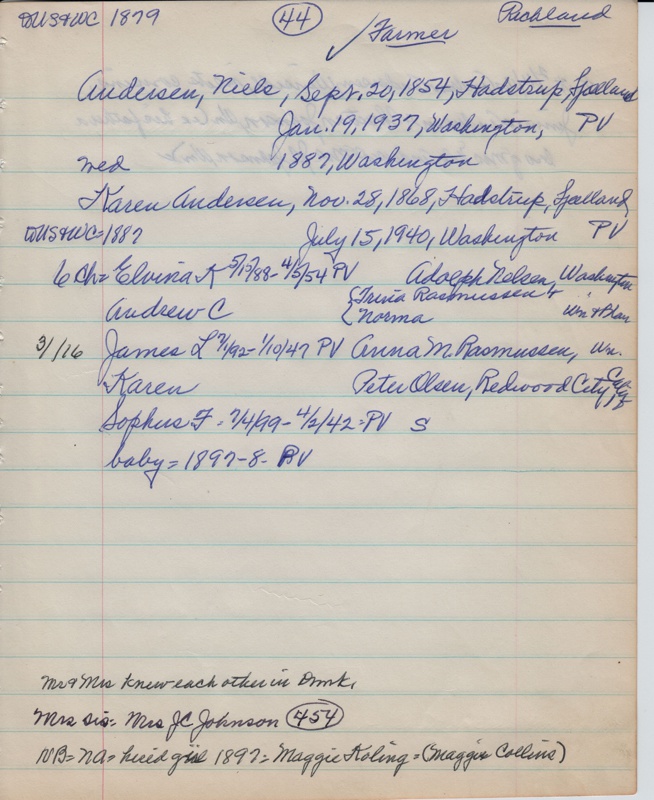 DUS&WC 1879 (44) ✓ Farmer Richland
Andersen, Niels, Sept. 20, 1854, Hadstrup, Sjoelland
Jan. 19, 1937, Washington, PV
wed 1887, Washington
Karen Andersen, Nov. 28, 1868, Hadstrup, Sjoelland
DUS&WC=1887 July 15, 1940, Washington PV
6 Ch= Elvina K 5/15/88-4/5/54 PV Adolph Nelsen, Washington
Andrew C { Trina Rasmussen +
{ Norma Wn &
3/1/16 James L 7/1/92-1/10/47 PV Anna M Rasmussen, Wn.
Karen Peter Olsen, Redwood City,
Sophus F - 7/4/99-4/2/42=PV S
baby = 1897-8- PV
Mr & Mrs knew each other in Dmk,
Mrs sis= Mrs JC Johnson (454)
NB=NA= hired girl 1897= Maggie Koling = (Maggie Collins)